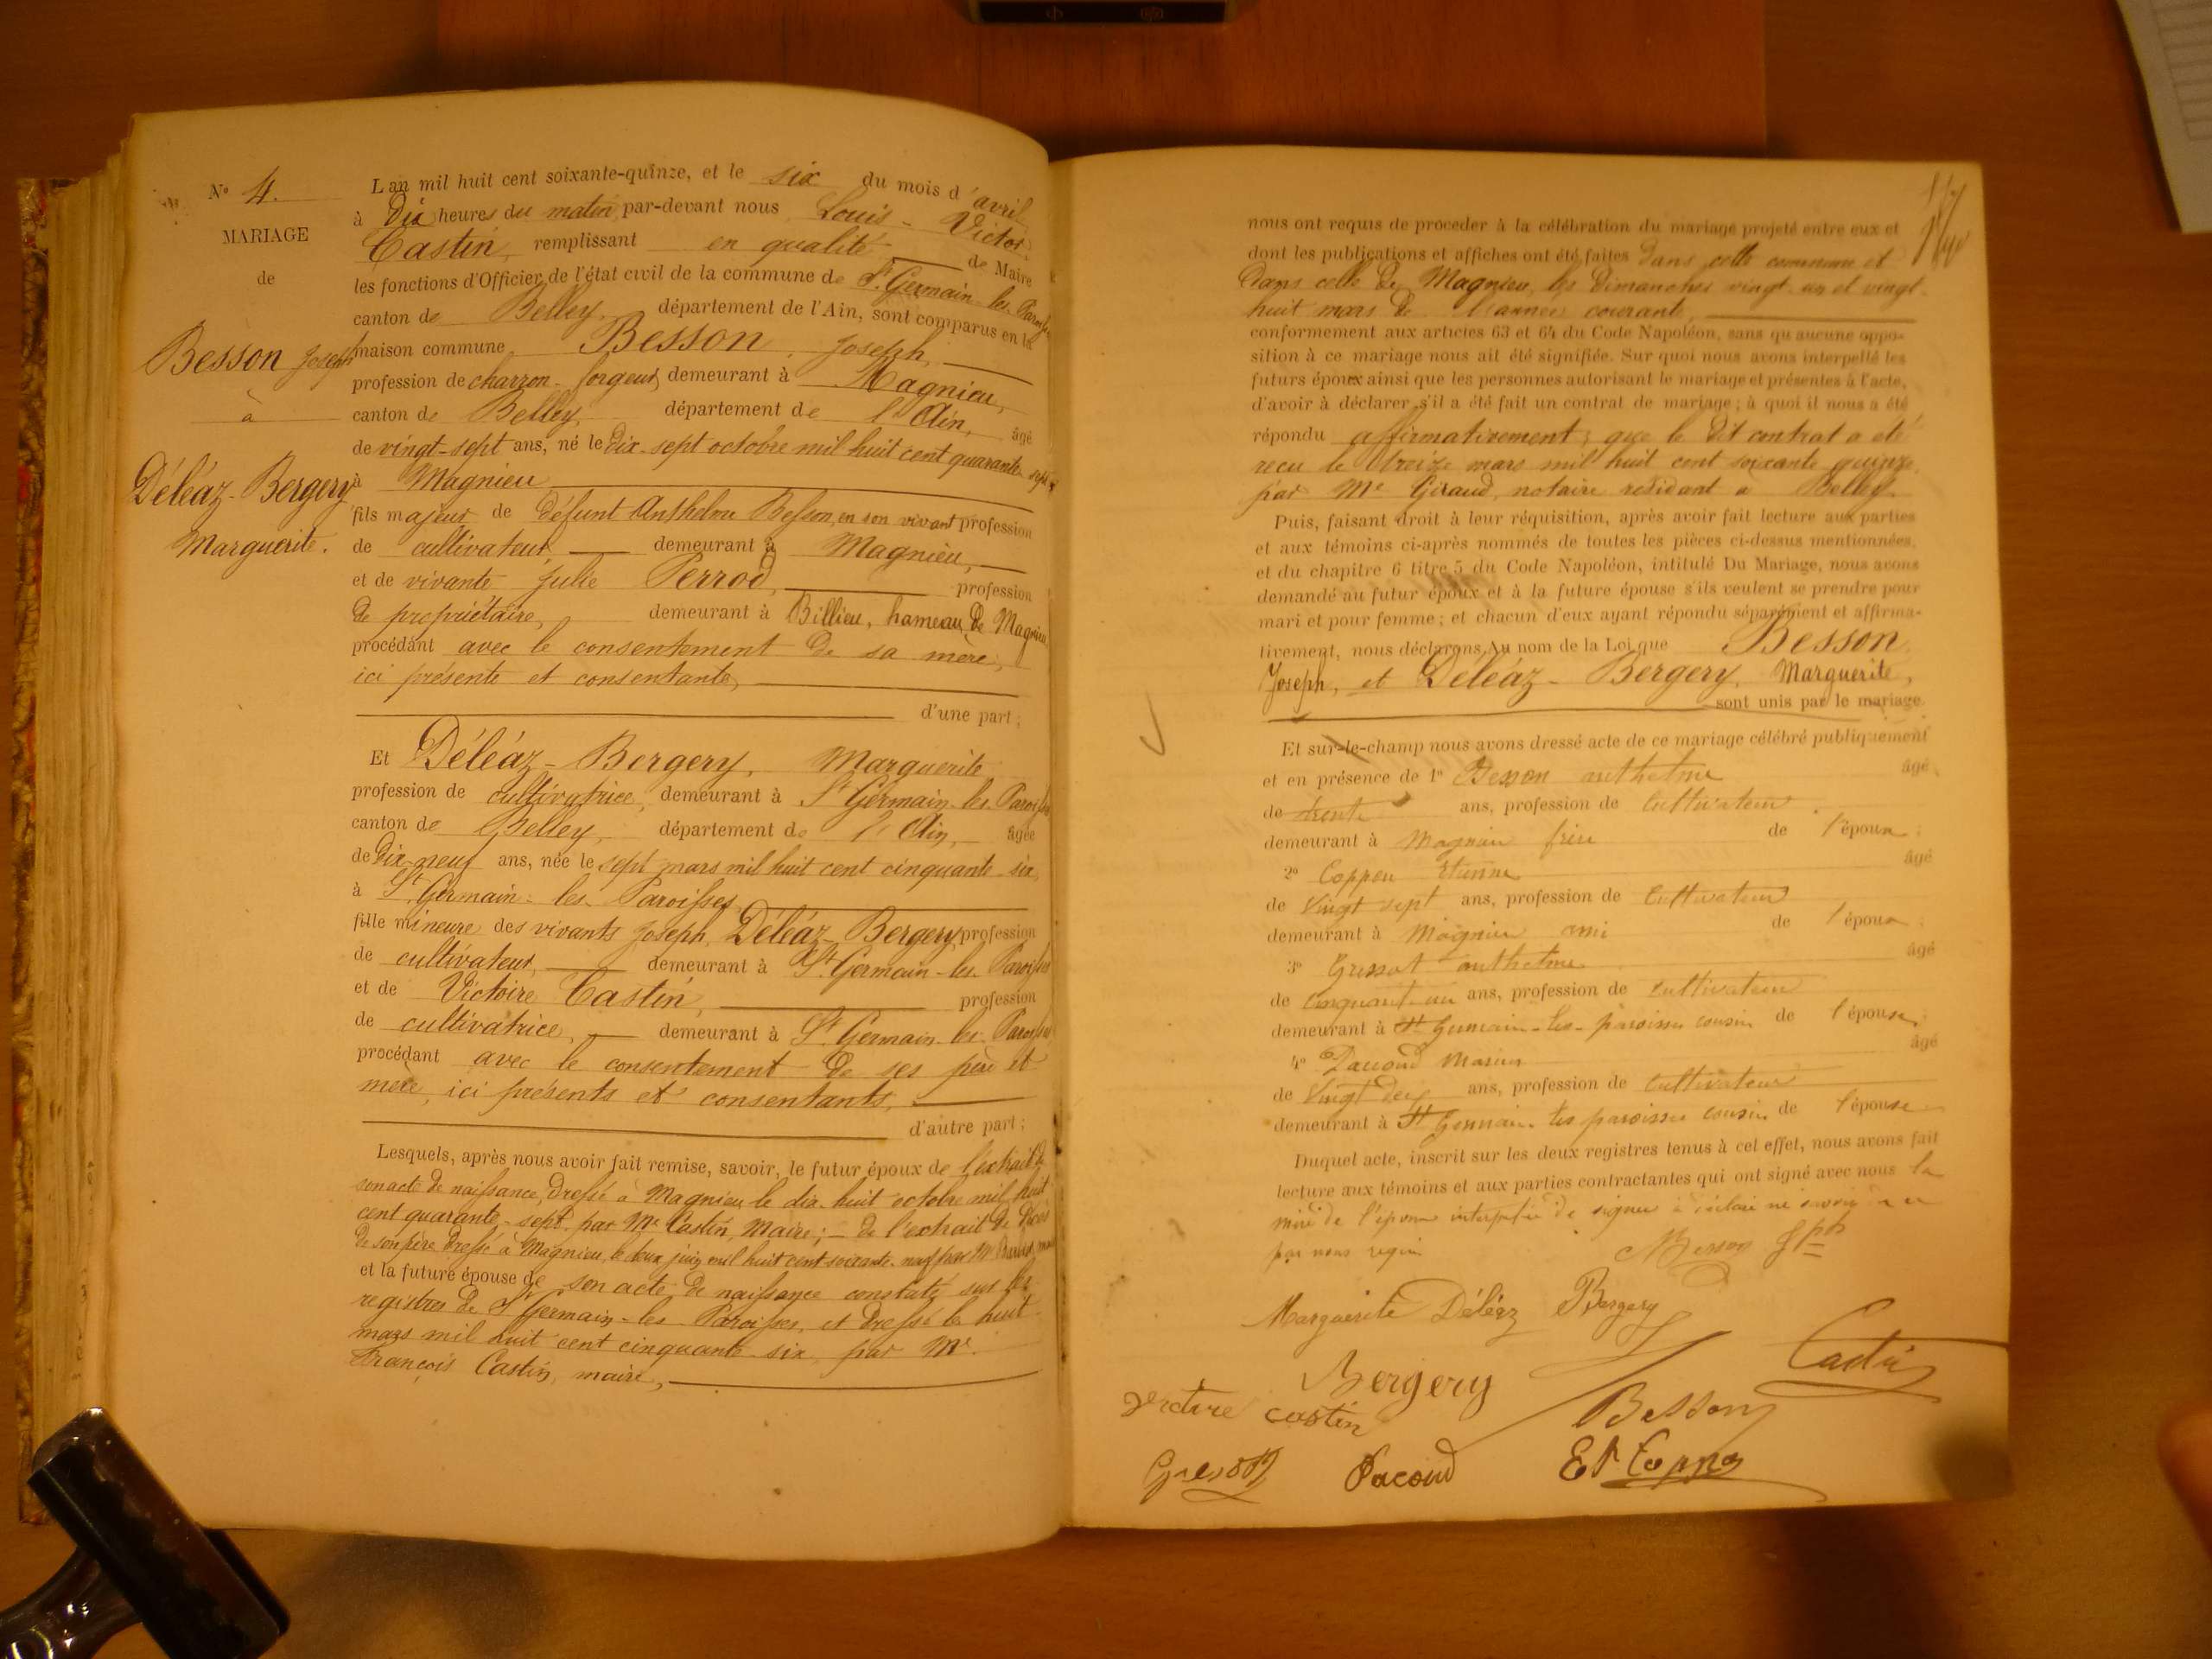 Nº 4.
MARIAGE
de
Besson Joseph
à
Déléaz-Bergery
Marguerite.
L'an mil huit cent soixante-quinze, et le six du mois d'avril
à Dix heures du matin par-devant nous Louis-Victor
Castin, remplissant en qualité de Maire
les fonctions d'Officier de l'état civil de la commune de St. Germain-les-Paroisses
canton de Belley, département de l'Ain, sont comparus en la
maison commune Besson, Joseph,
profession de charron-forgeur, demeurant à Magnieu,
canton de Belley, département de l'Ain, âgé
de vingt-sept ans, né le Dix-sept octobre mil huit cent quarante-sept,
à Magnieu
fils majeur de défunt Anthelme Besson, en son vivant profession
de cultivateur, demeurant à Magnieu,
et de vivante Julie Perrod, profession
de propriétaire, demeurant à Billieu, hameau de Magnieu
procédant avec le consentement de sa mère,
ici présente et consentante,
d'une part;
Et Déléaz-Bergery, Marguerite
profession de cultivatrice, demeurant à St Germain-les-Paroisses
canton de Belley, département de l'Ain, âgée
de Dix-neuf ans, née le sept mars mil huit cent cinquante-six,
à St. Germain-les-Paroisses,
fille mineure des vivants Joseph Déléaz-Bergery profession
de cultivateur, demeurant à St. Germain-les-Paroisses
et de Victoire Castin, profession
de cultivatrice, demeurant à St. Germain-les-Paroisses
procédant avec le consentement de ses père et
mère, ici présents et consentants,
d'autre part;
Lesquels, après nous avoir fait remise, savoir, le futur époux de l'extrait de
son acte de naissance, dressé à Magnieu le dix-huit octobre mil huit
cent quarante-sept, par Mr Castin, Maire; - de l'extrait de décès
de son père dressé à Magnieu, le deux juin mil huit cent soixante-neuf par Mr maire
et la future épouse de son acte de naissance constaté sur les
registres de St Germain-les-Paroisses, et dressé le huit
mars mil huit cent cinquante-six, par Mr.
François Castin, maire,
nous ont requis de procéder à la célébration du mariage projeté entre eux et
dont les publications et affiches ont été faites dans cette commune et
dans celle de Magnieu, les dimanches vingt-un et vingt-
huit mars de l'année courante,
conformément aux articles 63 et 64 du Code Napoléon, sans qu'aucune oppo-
sition à ce mariage nous ait été signifiée. Sur quoi nous avons interpellé les
futurs époux ainsi que les personnes autorisant le mariage et présentes à l'acte,
d'avoir à déclarer s'il a été fait un contrat de mariage; à quoi il nous a été
répondu affirmativement; que le dit contrat a été
reçu le treize mars mil huit cent soixante quinze,
par Me Giraud, notaire résidant à Belley.
Puis, faisant droit à leur réquisition, après avoir fait lecture aux parties
et aux témoins ci-après nommés de toutes les pièces ci-dessus mentionnées,
et du chapitre 6 titre 5 du Code Napoléon, intitulé Du Mariage, nous avons
demandé au futur époux et à la future épouse s'ils veulent se prendre pour
mari et pour femme; et chacun d'eux ayant répondu séparément et affirma-
tivement, nous déclarons Au nom de la Loi que Besson
Joseph, et Déléaz-Bergery, Marguerite,
sont unis par le mariage.
Et sur-le-champ nous avons dressé acte de ce mariage célébré publiquement
et en présence de 1º Besson anthelme âgé
de trente ans, profession de Cultivateur
demeurant à Magnieu frère de l'époux;
2º Coppou Etienne âgé
de Vingt sept ans, profession de Cultivateur
demeurant à Magnieu ami de l'époux;
3º Gressot anthelme âgé
de Cinquante un ans, profession de Cultivateur
demeurant à St Germain-les-paroisses cousin de l'épouse,
4º Pacoud Marius âgé
de Vingt deux ans, profession de Cultivateur
demeurant à St Germain-les paroisses cousin de l'épouse
Duquel acte, inscrit sur les deux registres tenus à cet effet, nous avons fait
lecture aux témoins et aux parties contractantes qui ont signé avec nous la
mère de l'époux interpellée de signer à déclaré ne savoir de ce
par nous requis
Besson Jph
Marguerite Déléaz Bergery
Bergery Castin
Victoire castin Besson
Gressot Pacoud Et Coppo